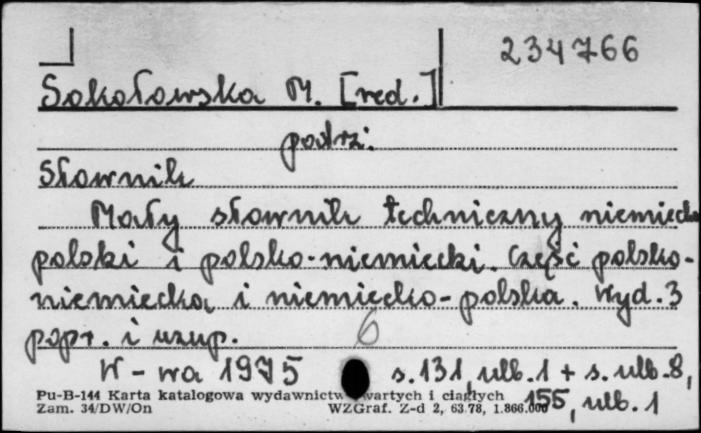 234766
Sokołowska M. [red.]
podrz:
Słownik
Mały słownik techniczny niemiecko
polski i polsko-niemiecki. Część polsko-
niemiecka i niemiecko-polska. Wyd. 3
popr. i uzup.
6
W-wa 1975 s. 131, nlb. 1 + s. nlb. 8,
155, nlb. 1
Pu-B-144 Karta katalogowa wydawnictw zwartych i ciągłych
Zam. 34/DW/On WZGraf. Z-d 2, 63.78, 1.866.000